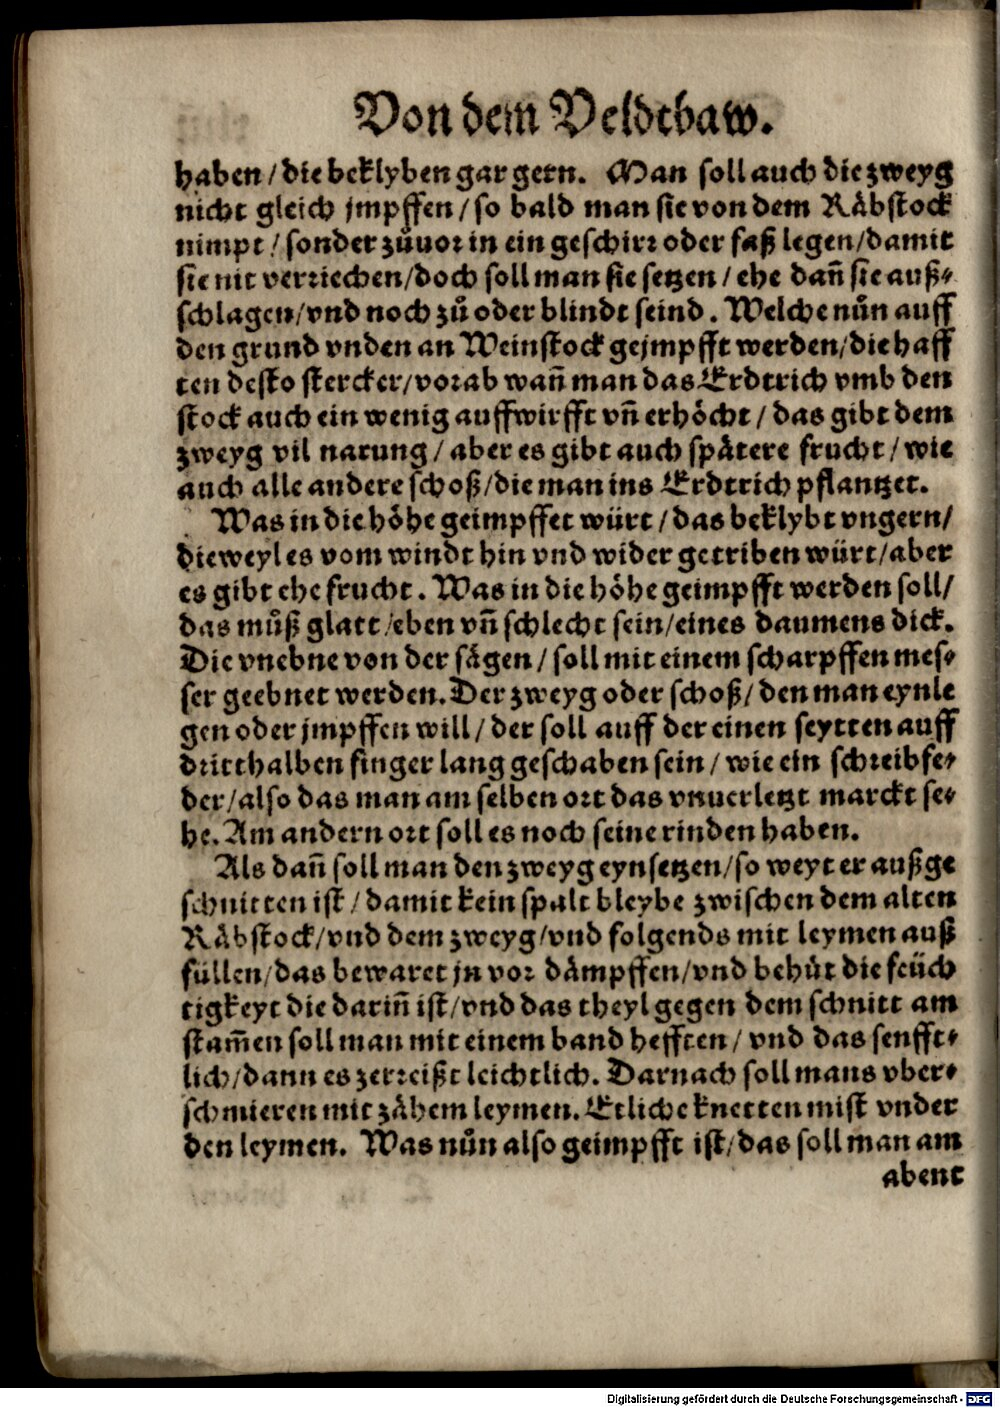 Von dem Veldtbaw.
haben / die beklyben gar gern. Man soll auch die zweyg
nicht gleich jmpffen / so bald man sie von dem Räbstock
nimpt / sonder zůuor in ein geschirr oder faß legen / damit
sie nit verriechen / doch soll man sie setzen / ehe dañ sie auß⸗
schlagen / vnd noch zů oder blindt seind. Welche nůn auff
den grund vnden an Weinstock gejmpfft werden / die haff
ten desto stercker / vorab wañ man das Erdtrich vmb den
stock auch ein wenig auffwirfft vñ erhöcht / das gibt dem
zweyg vil narung / aber es gibt auch spätere frucht / wie
auch alle andere schoß / die man ins Erdtrich pflantzet.
Was in die höhe geimpffet würt / das beklybt vngern /
dieweyl es vom windt hin vnd wider getriben würt / aber
es gibt ehe frucht. Was in die höhe geimpfft werden soll /
das můß glatt / eben vñ schlecht sein / eines daumens dick.
Die vnebne von der sägen / soll mit einem scharpffen mes⸗
ser geebnet werden. Der zweyg oder schoß / den man eynle
gen oder jmpffen will / der soll auff der einen seytten auff
dritthalben finger lang geschaben sein / wie ein schreibfe⸗
der / also das man am selben ort das vnuerletzt marckt se⸗
he. Am andern ort soll es noch seine rinden haben.
Als dañ soll man den zweyg eynsetzen / so weyt er außge
schnitten ist / damit kein spalt bleybe zwischen dem alten
Räbstock / vnd dem zweyg / vnd folgends mit leymen auß
füllen / das bewaret jn vor dämpffen / vnd behüt die feüch
tigkeyt die dariñ ist / vnd das theyl gegen dem schnitt am
stam̃en soll man mit einem band hefften / vnd das senfft⸗
lich / dann es zerreißt leichtlich. Darnach soll mans vber⸗
schmieren mit zähem leymen. Etliche knetten mist vnder
den leymen. Was nůn also geimpfft ist / das soll man am
abent
Digitalisierung gefördert durch die Deutsche Forschungsgemeinschaft - DFG